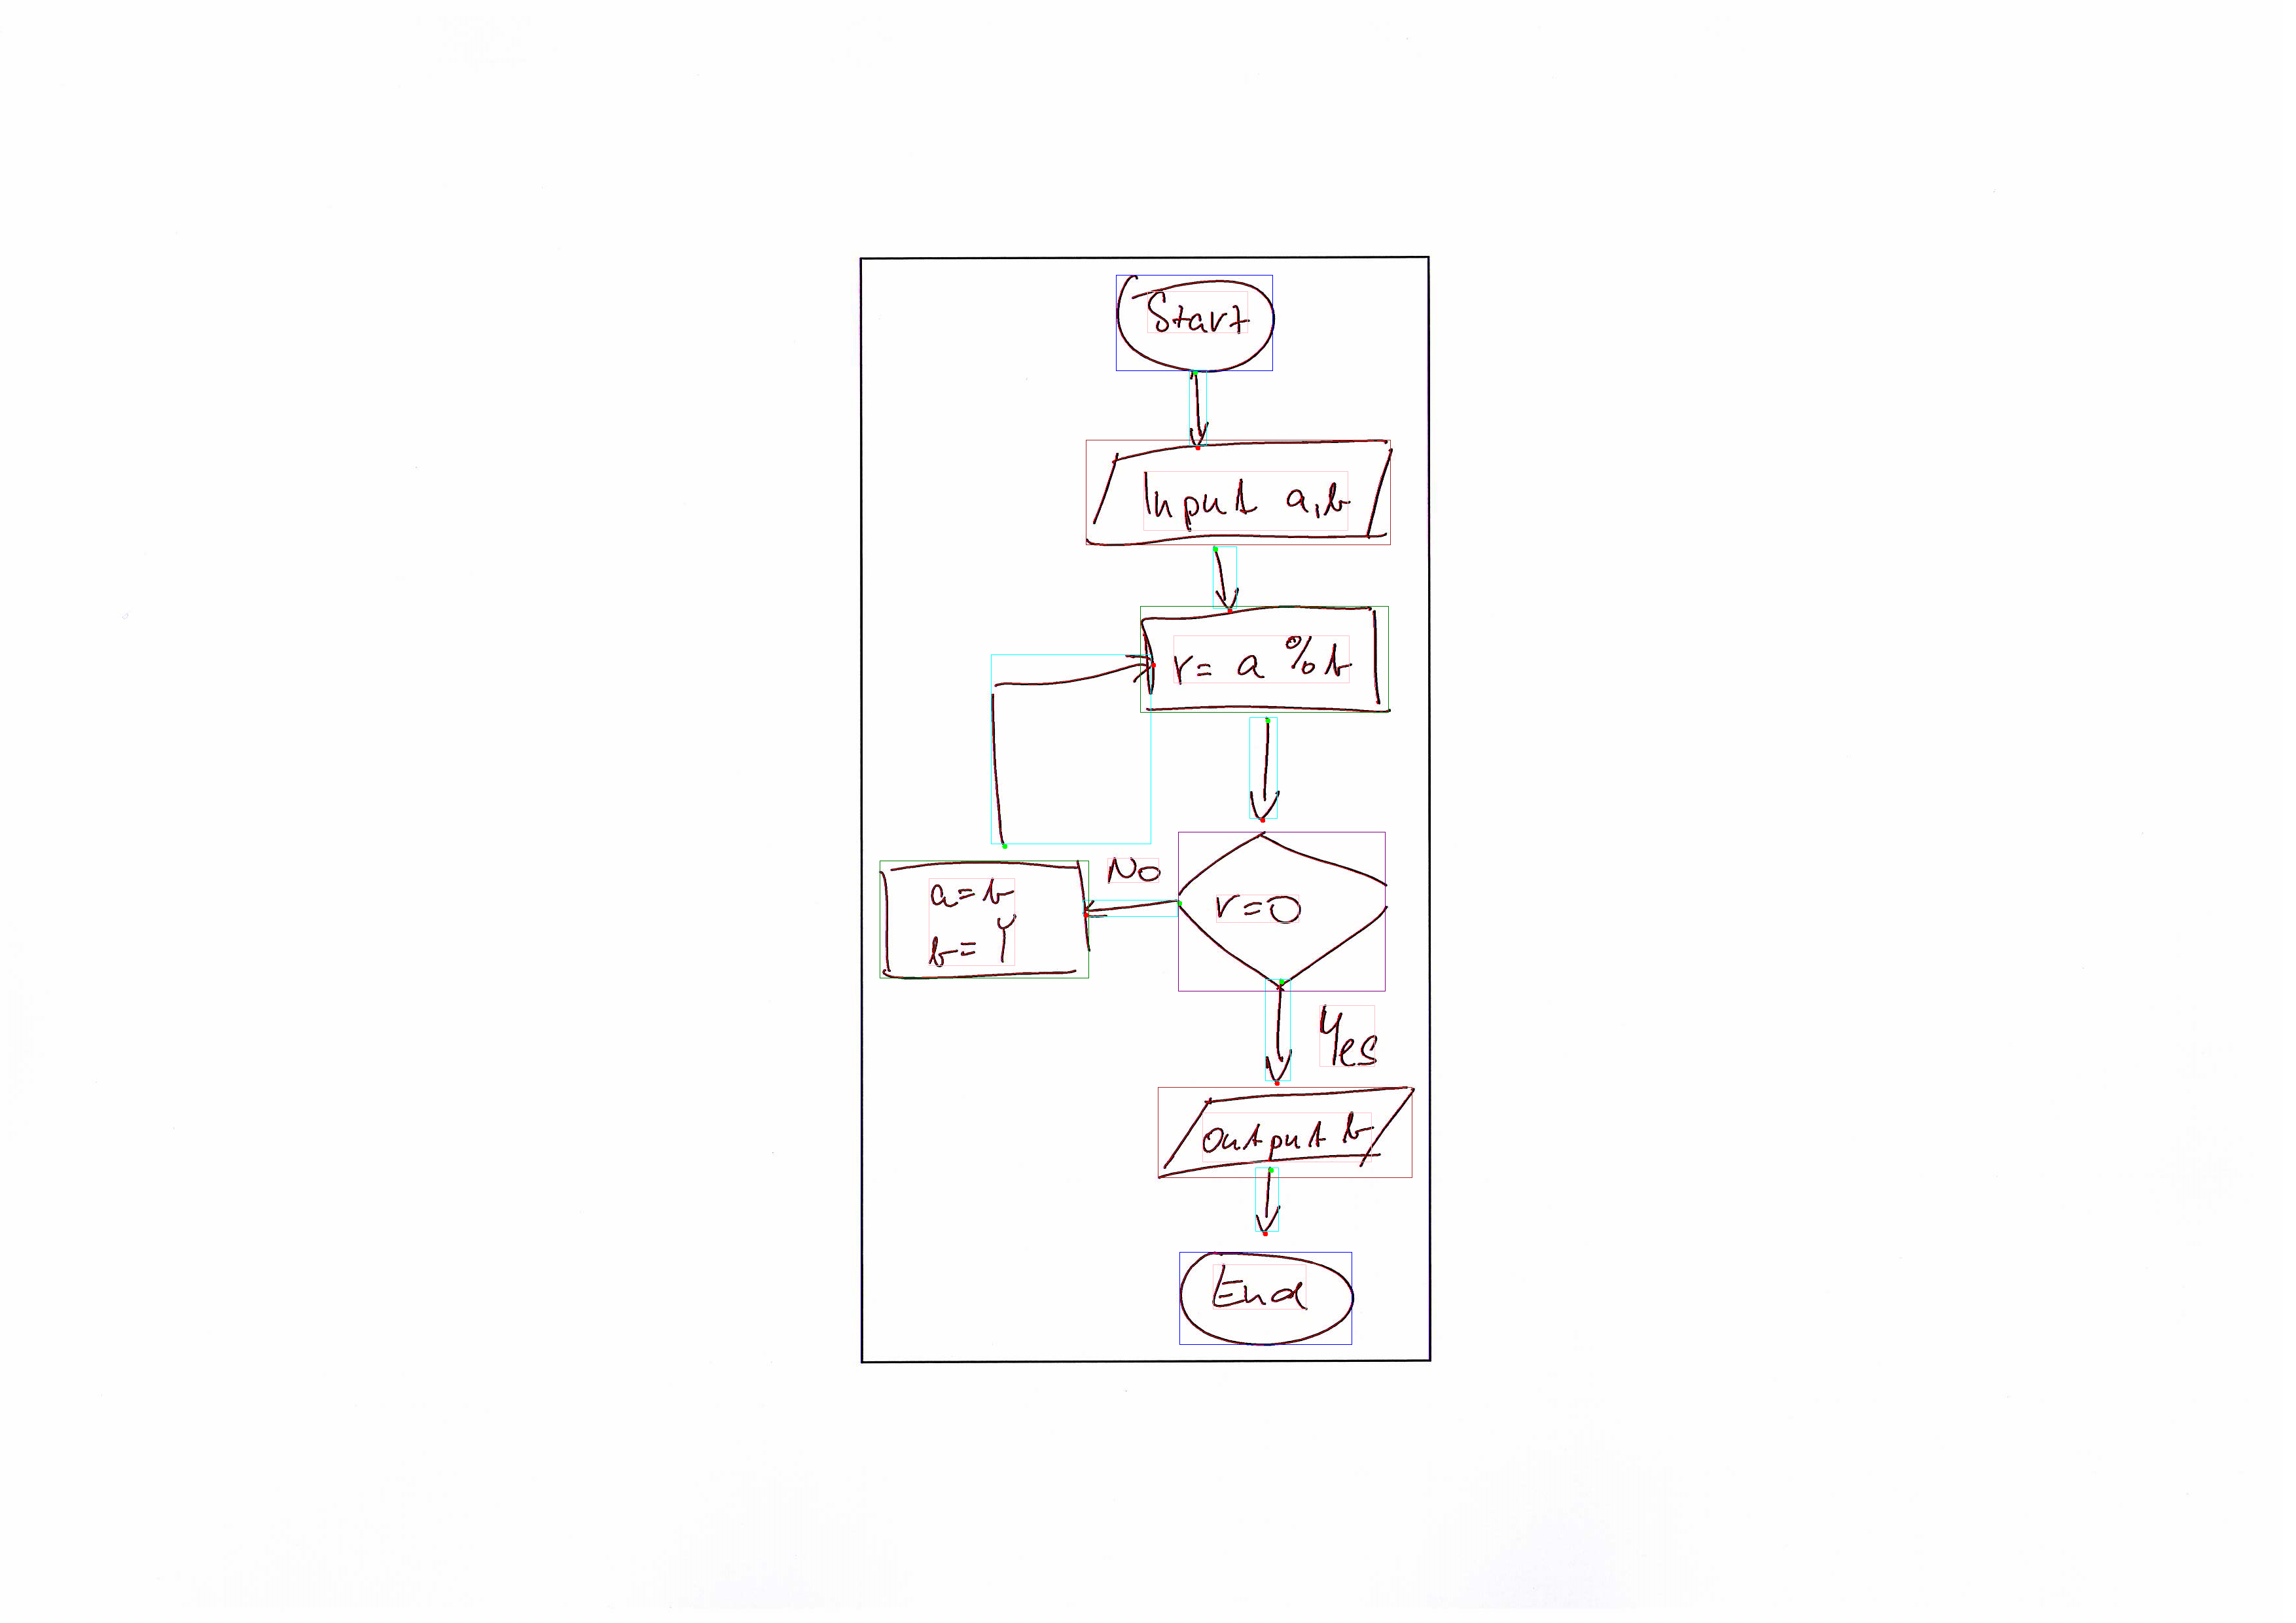 Start
Input a,b
r= a % b
No
r=0
a=b
b= r
Yes
Output b
End